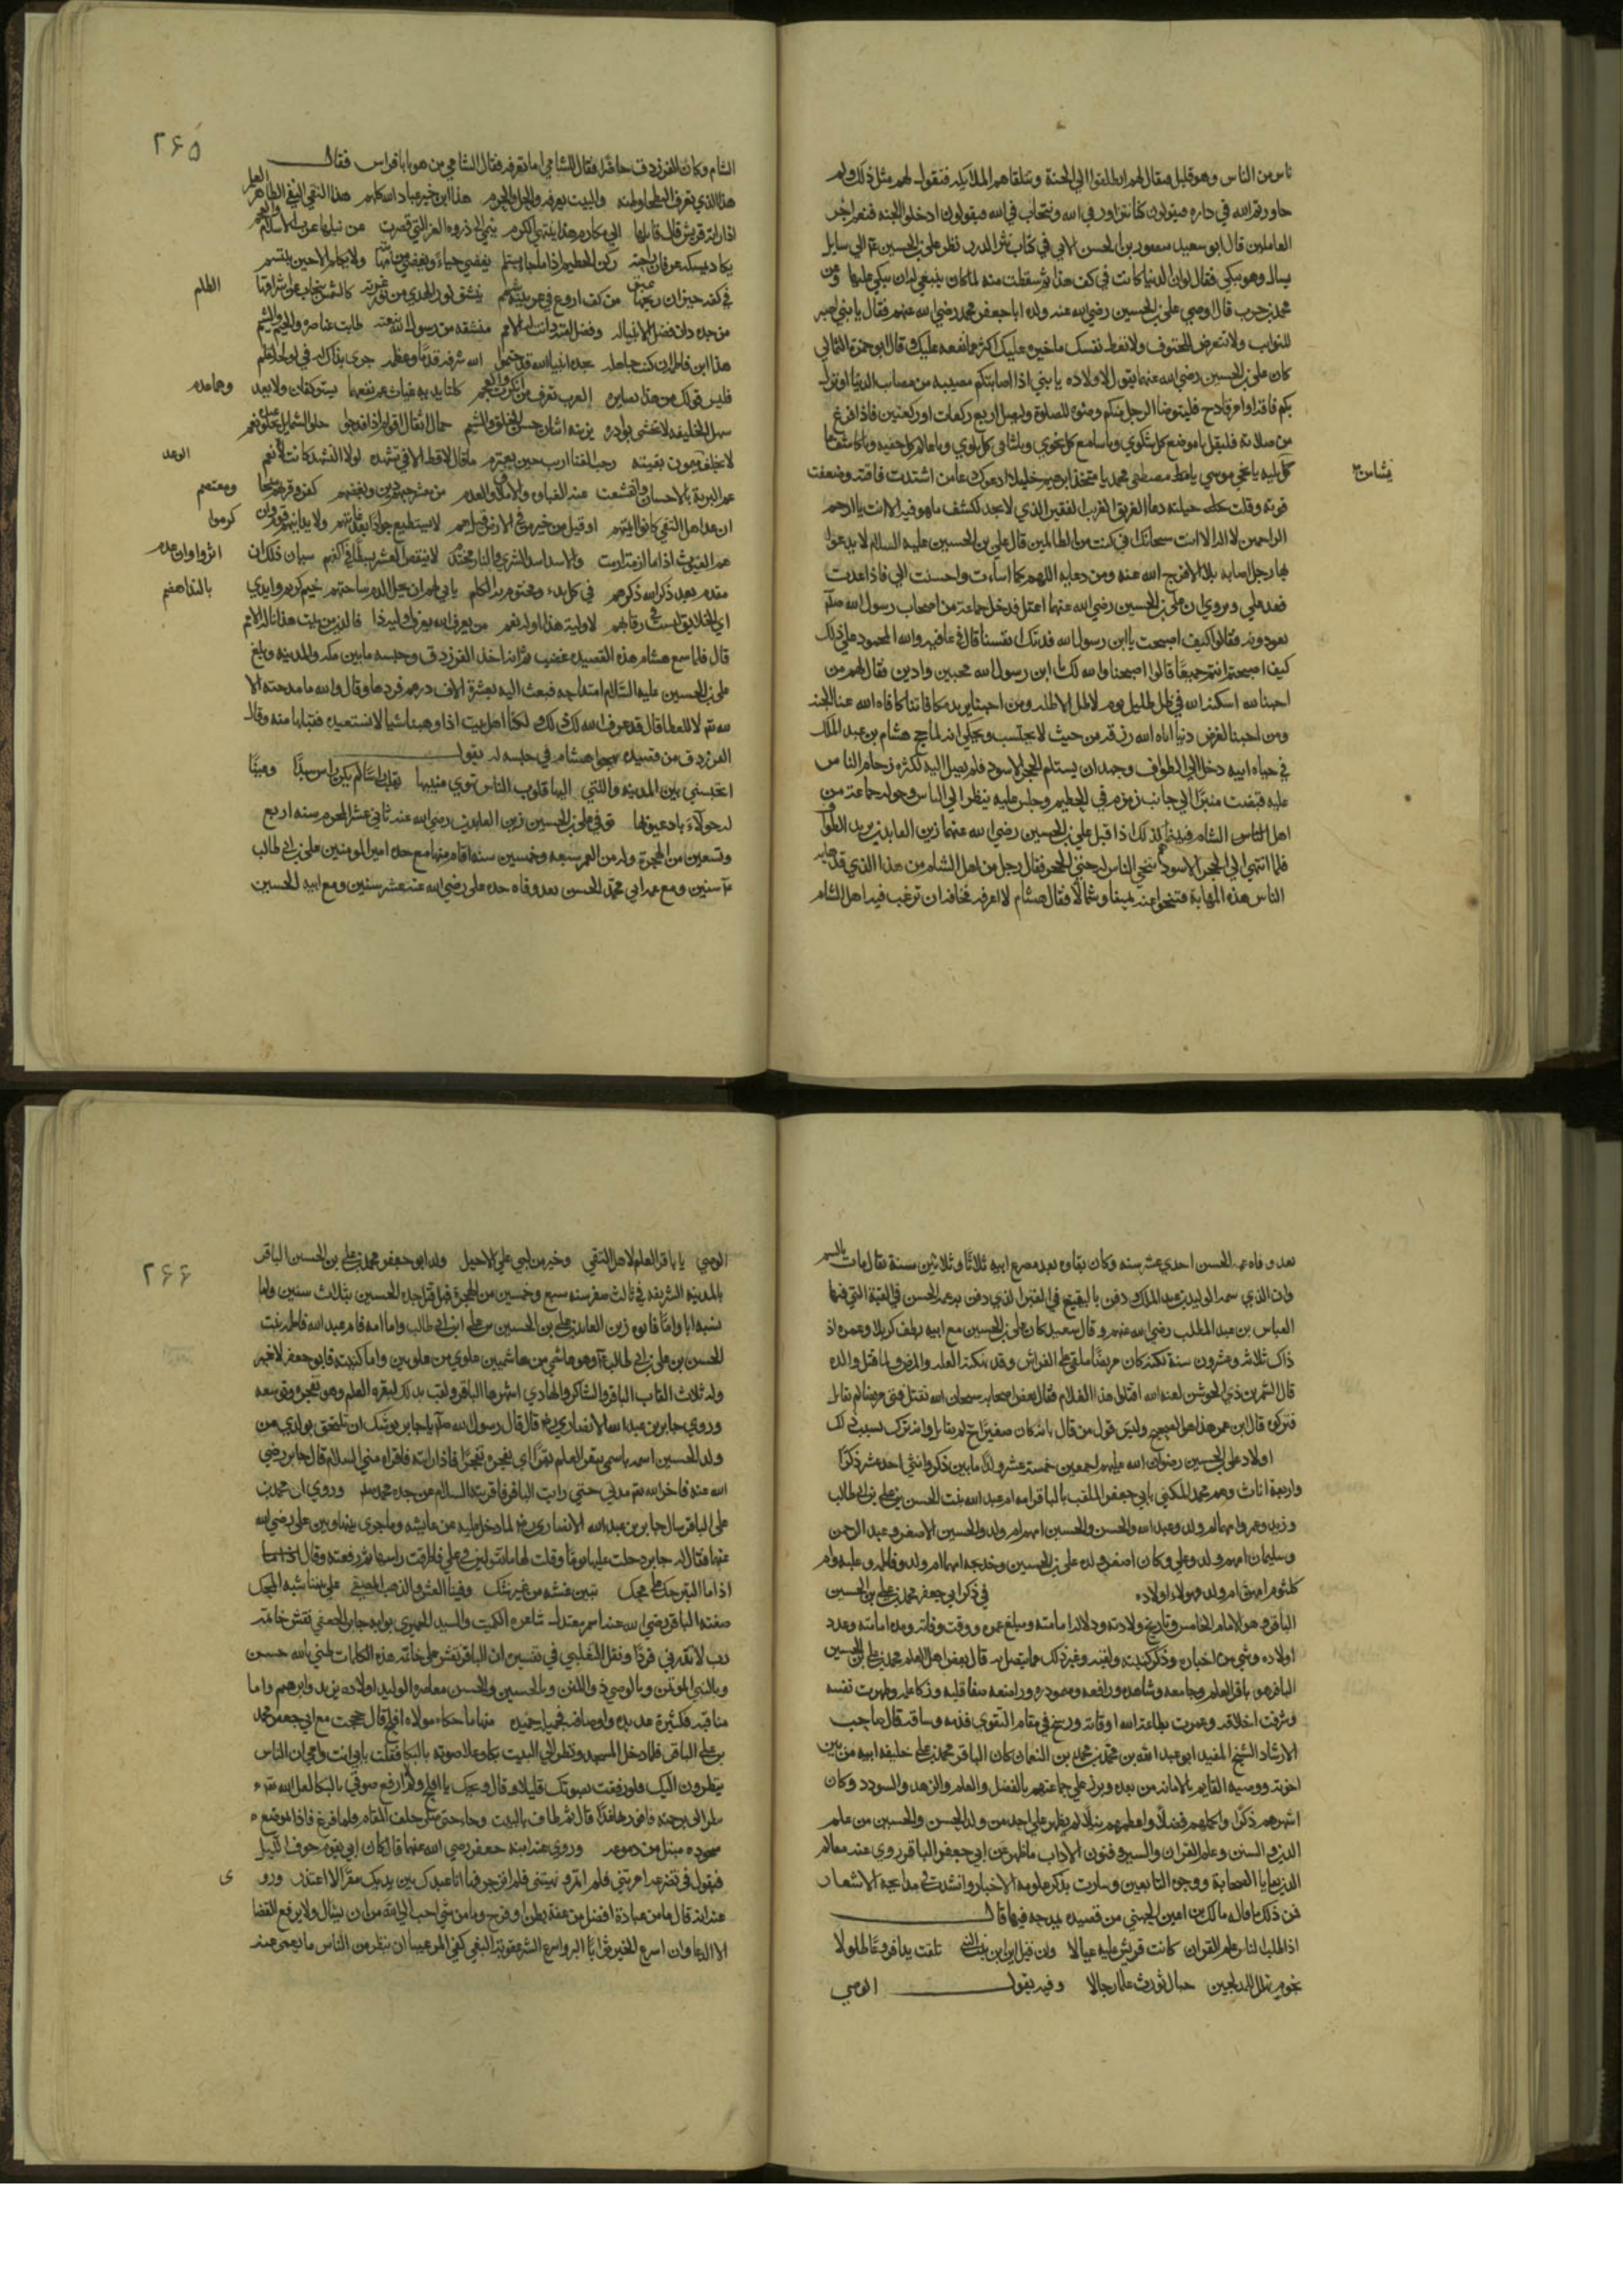 ناس من الناس وهم قليل فيقال لهم انطلقوا الي الجنة وتتلقاهم الملائكة فتقول لهم مثل ذلك ولم
جاورتم الله في داره فيقولون كنا نتزاور في الله ونتحاب في الله فيقولون ادخلوا الجنة فنعم اجر
العاملين قال ابو سعيد منصور بن الحسن الابي في كتاب نثر الدرر نظر علي بن الحسين الي سايل
يسال وهو يبكي فقال لو ان الدنيا كانت في كف هذا ثم سقطت منه لما كان ينبغي له ان يبكي عليها وعن
محمد بن حرب قال اوصي علي بن الحسين رضي الله عنه ولده ابا جعفر محمد رضي الله عنهم فقال يا بني اصبر
للنوايب ولا تتعرض للحتوف ولا تعط نفسك ما ضره عليك اكثر مما نفعه عليك وقال ابو حمزة الثمالي
كان علي بن الحسين رضي الله عنهما يقول لاولاده يا بني اذا اصابتكم مصيبة من مصايب الدنيا او نزل
بكم فاقة او امر فادح فليتوضا الرجل منكم وضوه للصلوة وليصل اربع ركعات او ركعتين فاذا فرغ
من صلاته فليقل يا موضع كل شكوي ويا سامع كل نجوي ويا شافي كل بلوي ويا عالم كل خفية ويا كاشف ما
يشا من
كل بلية يا منجي موسي يا مصطفي محمد يا متخذ ابرهيم خليلا ادعوك دعا من اشتدت فاقته وضعفت
قوته وقلت حيلته دعا الغريق الغريب الفقير الذي لا يجد لكشف ما هو فيه الا انت يا ارحم
الراحمين لا اله الا انت سبحانك اني كنت من الظالمين قال علي بن الحسين عليه السلام لا يدعو
بها رجل اصابه بلا الا فرج الله عنه ومن دعايه اللهم كما اسات واحسنت الي فاذا عدت
فعد علي ويروي ان علي بن الحسين رضي الله عنهما اعتل فدخل جماعة من اصحاب رسول الله صلم
يعودونه فقالوا كيف اصبحت يا ابن رسول الله فدتك انفسنا قال في عافيه والله المحمود علي ذلك
كيف اصبحتم انتم جميعا قالوا اصبحنا والله لك يا ابن رسول الله محبين وادين فقال لهم من
احبنا لله اسكنه الله في ظل ظليل يوم لا ظل الا ظله ومن احبنا يريد مكافاتنا كافاه الله عنا الجنة
ومن احبنا لغرض دنيا اتاه الله رزقه من حيث لا يحتسب ويحكي انه لما حج هشام بن عبد الملك
في حياه ابيه دخل الي الطواف وجهد ان يستلم الحجر الاسود فلم يصل اليه لكثرة زحام الناس
عليه فنصب منبر الي جانب زمزم في الحطيم وجلس عليه ينظر الي الناس وحوله جماعة من
اهل الشام فبينما كذلك اذ اقبل علي بن الحسين رضي الله عنهما زين العابدين يريد الطواف
فلما انتهي الي الحجر الاسود تنحي الناس له حتي استلم الحجر فقال رجل من اهل الشام من هذا الذي قد هابه
الناس هذه المهابة فتنحوا عنه يمينا وشمالا فقال هشام لا اعرفه مخافة ان ترغب فيه اهل الشام
٢٦٥
الشام وكان الفرزدق حاضرا فقال للشامي انا اعرفه فقال الشامي من هو يا ابا فراس فقال
هذا الذي تعرف البطحا وطاته والبيت يعرفه والحل والحرم هذا ابن خير عباد الله كلهم هذا التقي النقي الطاهر العلم
اذا راته قريش قال قايلها الي مكارم هذا ينتهي الكرم ينمي الي ذروة العز التي قصرت عن نيلها عرب الاسلام والعجم
يكاد يمسكه عرفان راحته ركن الحطيم اذا ما جا يستلم يغضي حياء ويغضي من مهابته ولا يكلم الا حين يبتسم
في كفه خيزران ريحها عبق من كف اروع في عرنينه شمم ينشق نور الهدي من نور غرته كالشمس ينجاب عن اشراقها
الظلم
من جده دان فضل الانبيا له وفضل امته دانت له الامم منشقة من رسول الله نبعته طابت عناصره والخيم والشيم
هذا ابن فاطمة ان كنت جاهله بجده انبيا الله قد ختموا الله شرفه قدما وعظمه جري بذاك له في لوحه القلم
فليس قولك من هذا بضايره العرب تعرف من انكرت والعجم كلتا يديه غياث عم نفعهما يستوكفان ولا يعد
وهما عدم
سهل الخليقة لا تخشي بوادره يزينه اثنان حسن الخلق والشيم حمال اثقال اقوام اذا فدحوا حلو الشمايل تحلو عنده نعم
لا يخلف ميمون نقيبته رحب الفنا اريب حين يعتزم ما قال لا قط الا في تشهده لولا التشهد كانت لاءه نعم
الوعد
عم البرية بالاحسان وانقشعت عنه الغياهب والاملاق والعدم من معشر حبهم دين وبغضهم كفر وقربهم منجا
ومعتصم
ان عد اهل التقي كانوا ايمتهم او قيل من خير اهل الارض قيل هم لا يستطيع جواد بعد غايتهم ولا يدانيهم قوم وان
كرموا
هم الغيوث اذا ما ازمة ازمت والاسد اسد الشري والنار محتدم لا ينقص العسر بسطا من اكفهم سيان ذلك ان
اثروا وان عدموا
مقدم بعد ذكر الله ذكرهم في كل بدء ومختوم به الكلم يابي لهم ان يحل الذم ساحتهم خيم كريم وايدي
بالندا هضم
اي الخلايق ليست في رقابهم لاولية هذا اوله نعم من يعرف الله يعرف اولية ذا فالدين من بيت هذا ناله الامم
قال فلما سمع هشام هذه القصيدة غضب ثم انه اخذ الفرزدق وحبسه ما بين مكه والمدينه وبلغ
علي بن الحسين عليه السلام امتداحه فبعث اليه بعشرة الاف درهم فردها وقال والله ما مدحته الا
لله تع لا للعطا فقال قد عرف الله لك ذلك ولكنا اهل بيت اذا وهبنا شيا لا نستعيده فقبلها منه وقال
الفرزدق من قصيدة يهجوا هشام في حبسه له يقول
اتحبسني بين المدينه والتي اليها قلوب الناس تهوي منيبها تقلب راسا لم يكن راس سيد وعينا
له حولاء باد عيوبها توفي علي بن الحسين زين العابدين رضي الله عنه ثاني عشر المحرم سنه اربع
وتسعين من الهجرة وله من العمر سبعه وخمسين سنه اقام منها مع جده امير المومنين علي بن ابي طالب
سنين ومع عمه ابي محمد الحسن بعد وفاه جده علي رضي الله عنه عشر سنين ومع ابيه الحسين
بعد وفاه عمه الحسن احدي عشر سنه وكان بقاوه بعد مصرع ابيه ثلاثا وثلاثين سنة يقال مات بالسم
وان الذي سمه الوليد بن عبد الملك دفن بالبقيع في القبر الذي دفن به عمه الحسن في القبة التي فيها
العباس بن عبد المطلب رضي الله عنهم وقال سعيد كان علي بن الحسين مع ابيه بطف كربلا وعمره اذ
ذاك ثلاث وعشرون سنة لكنه كان مريضا ملقي علي الفراش وقد نهكته العلة والمرض ولما قتل والده
قال الشمر بن ذي الجوشن لعنه الله اقتلوا هذا الغلام فقال بعض اصحابه سبحان الله نقتل فتي مريضا لم يقاتل
فتركوه قال ابن عمر هذا هو الصحيح وليس قول من قال بانه كان صغيرا لم يقاتل وانه ترك لسبب ذلك
اولاد علي بن الحسين رضوان الله عليهم اجمعين خمسة عشر ولدا ما بين ذكر وانثي احد عشر ذكرا
واربعة اناث وهم محمد المكني بابي جعفر الملقب بالباقر امه ام عبد الله بنت الحسن بن علي بن ابي طالب
وزيد وعمر وامهما ام ولد وعبد الله والحسن والحسين امهم ام ولد والحسين الاصغر وعبد الرحمن
وسليمان امهم ام ولد وعلي وكان اصغر ولد علي بن الحسين وخديجه امهما ام ولد وفاطمه وعليه وام
كلثوم امهن ام ولد فهولاء اولاده في ذكر ابي جعفر محمد بن علي بن الحسين
الباقر وهو الامام الخامس وتاريخ ولادته ودلايل امامته ومبلغ عمره ووقت وفاته ومدة امامته وعدد
اولاده وشي من اخباره وذكر كنيته ولقبه وغير ذلك مما يتصل به قال بعض اهل العلم محمد بن علي بن الحسين
الباقر هو باقر العلم وجامعه وشاهره ورافعه ومتفوق دره وراصعه صفا قلبه وزكا عمله وطهرت نفسه
وشرفت اخلاقه وعمرت بطاعة الله اوقاته ورسخ في مقام التقوي قدمه وميثاقه قال صاحب
الارشاد الشيخ المفيد ابو عبد الله بن محمد بن محمد بن النعمان كان الباقر محمد بن علي خليفة ابيه من بين
اخوته ووصيه القايم بالامامة من بعده وبرز علي جماعتهم بالفضل والعلم والزهد والسودد وكان
اشهرهم ذكرا واكملهم فضلا واعظمهم نبلا لم يظهر علي احد من ولد الحسن والحسين من علم
الدين والسنن وعلم القران والسير وفنون الاداب ما ظهر عن ابي جعفر الباقر روي عنه معالم
الدين بقايا الصحابة ووجوه التابعين وسارت بذكر علومه الاخبار وانشدت في مدايحه الاشعار
فمن ذلك ما قاله مالك بن اعين الجهني من قصيده يمدحه فيها قال
اذا طلب الناس علم القران كانت قريش عليه عيالا وان قيل اين ابن بنت النبي تلقت يداه فروعا طوالا
نجوم تهلل للمدلجين جبال تورث علما رجالا وفيه يقول الوصي
٢٦٦
الوصي يا باقر العلم لاهل التقي وخير من لبي علي الاجبل ولد ابو جعفر محمد بن علي بن الحسين الباقر
بالمدينة الشريفة في ثالث صفر سنه سبع وخمسين من الهجرة قبل قتل جده الحسين بثلاث سنين واما
نسبه ابا واما فابوه زين العابدين علي بن الحسين بن علي ابن ابي طالب واما امه فام عبد الله فاطمه بنت
الحسن بن علي بن ابي طالب وهو هاشمي من هاشميين علوي من علويين واما كنيته فابو جعفر لا غير
وله ثلاث القاب الباقر والشاكر والهادي اشهرها الباقر ولقب بذلك لبقره العلم وهو تفجره وتوسعه
وروي جابر بن عبد الله الانصاري قال قال رسول الله صلم يا جابر يوشك ان تلتحق بولدي من
ولد الحسين اسمه باسمي يبقر العلم بقرا اي يفجره تفجيرا فاذا رايته فاقراه مني السلام قال جابر رضي
الله عنه فاخر الله تع مدتي حتي رايت الباقر فاقريته السلام عن جده محمد وروي ان محمد بن
علي الباقر سال جابر بن عبد الله الانصاري لما دخل عليه عن عايشه وما جري بينها وبين علي رضي الله
عنهما فقال له جابر دخلت عليها يوما وقلت لها ما تقولين في علي فاطرقت راسها ثم رفعته وقالت
اذا ما التبر حك علي محك تبين غشه من غير شك وفينا الغش والذهب المصفي علي بيننا شبه المحك
صفته الباقر رضي الله عنه اسمر معتدل شاعره الكميت والسيد الحميري بوابه جابر الجعفي نقش خاتمه
رب لا تذرني فردا ونقل الثعلبي في تفسيره ان الباقر نقش علي خاتمه هذه الكلمات ظني بالله حسن
وبالنبي الموتمن وبالوصي ذي المنن وبالحسين والحسن معاصره الوليد اولاده يزيد وابرهيم واما
مناقبه فكثيرة عديده واوصافه فحميدة حميده منها ما حكاه مولاه افلح قال حججت مع ابي جعفر محمد
بن علي الباقر فلما دخل المسجد ونظر الي البيت بكا وعلا صوته بالبكا فقلت بابي انت وامي ان الناس
ينظرون اليك فلو رفعت بصوتك قليلا قال ويحك يا افلح ولم لا ارفع صوتي بالبكا لعل الله تع
ينظر الي برحمة فافوز بها غدا قال ثم طاف بالبيت وجاء حتي ركع خلف المقام فلما فرغ فاذا موضع
سجوده مبتل من دموعه وروي عنه ابنه جعفر رضي الله عنهما قال كان ابي يقوم جوف الليل
فيقول في تضرعه امرتني فلم اتمر ونهيتني فلم انزجر فها انا عبدك بين يديك مقرا لا اعتذر ورو
ي
عنه انه قال ما من عبادة افضل من عفة بطن او فرج وما من شي احب الي الله من ان يسال ولا يرفع القضا
الا الدعا وان اسرع الخير ثوابا البر واسرع الشر عقوبة البغي كفي بالمرء عيبا ان ينظر من الناس ما يعمي عنه